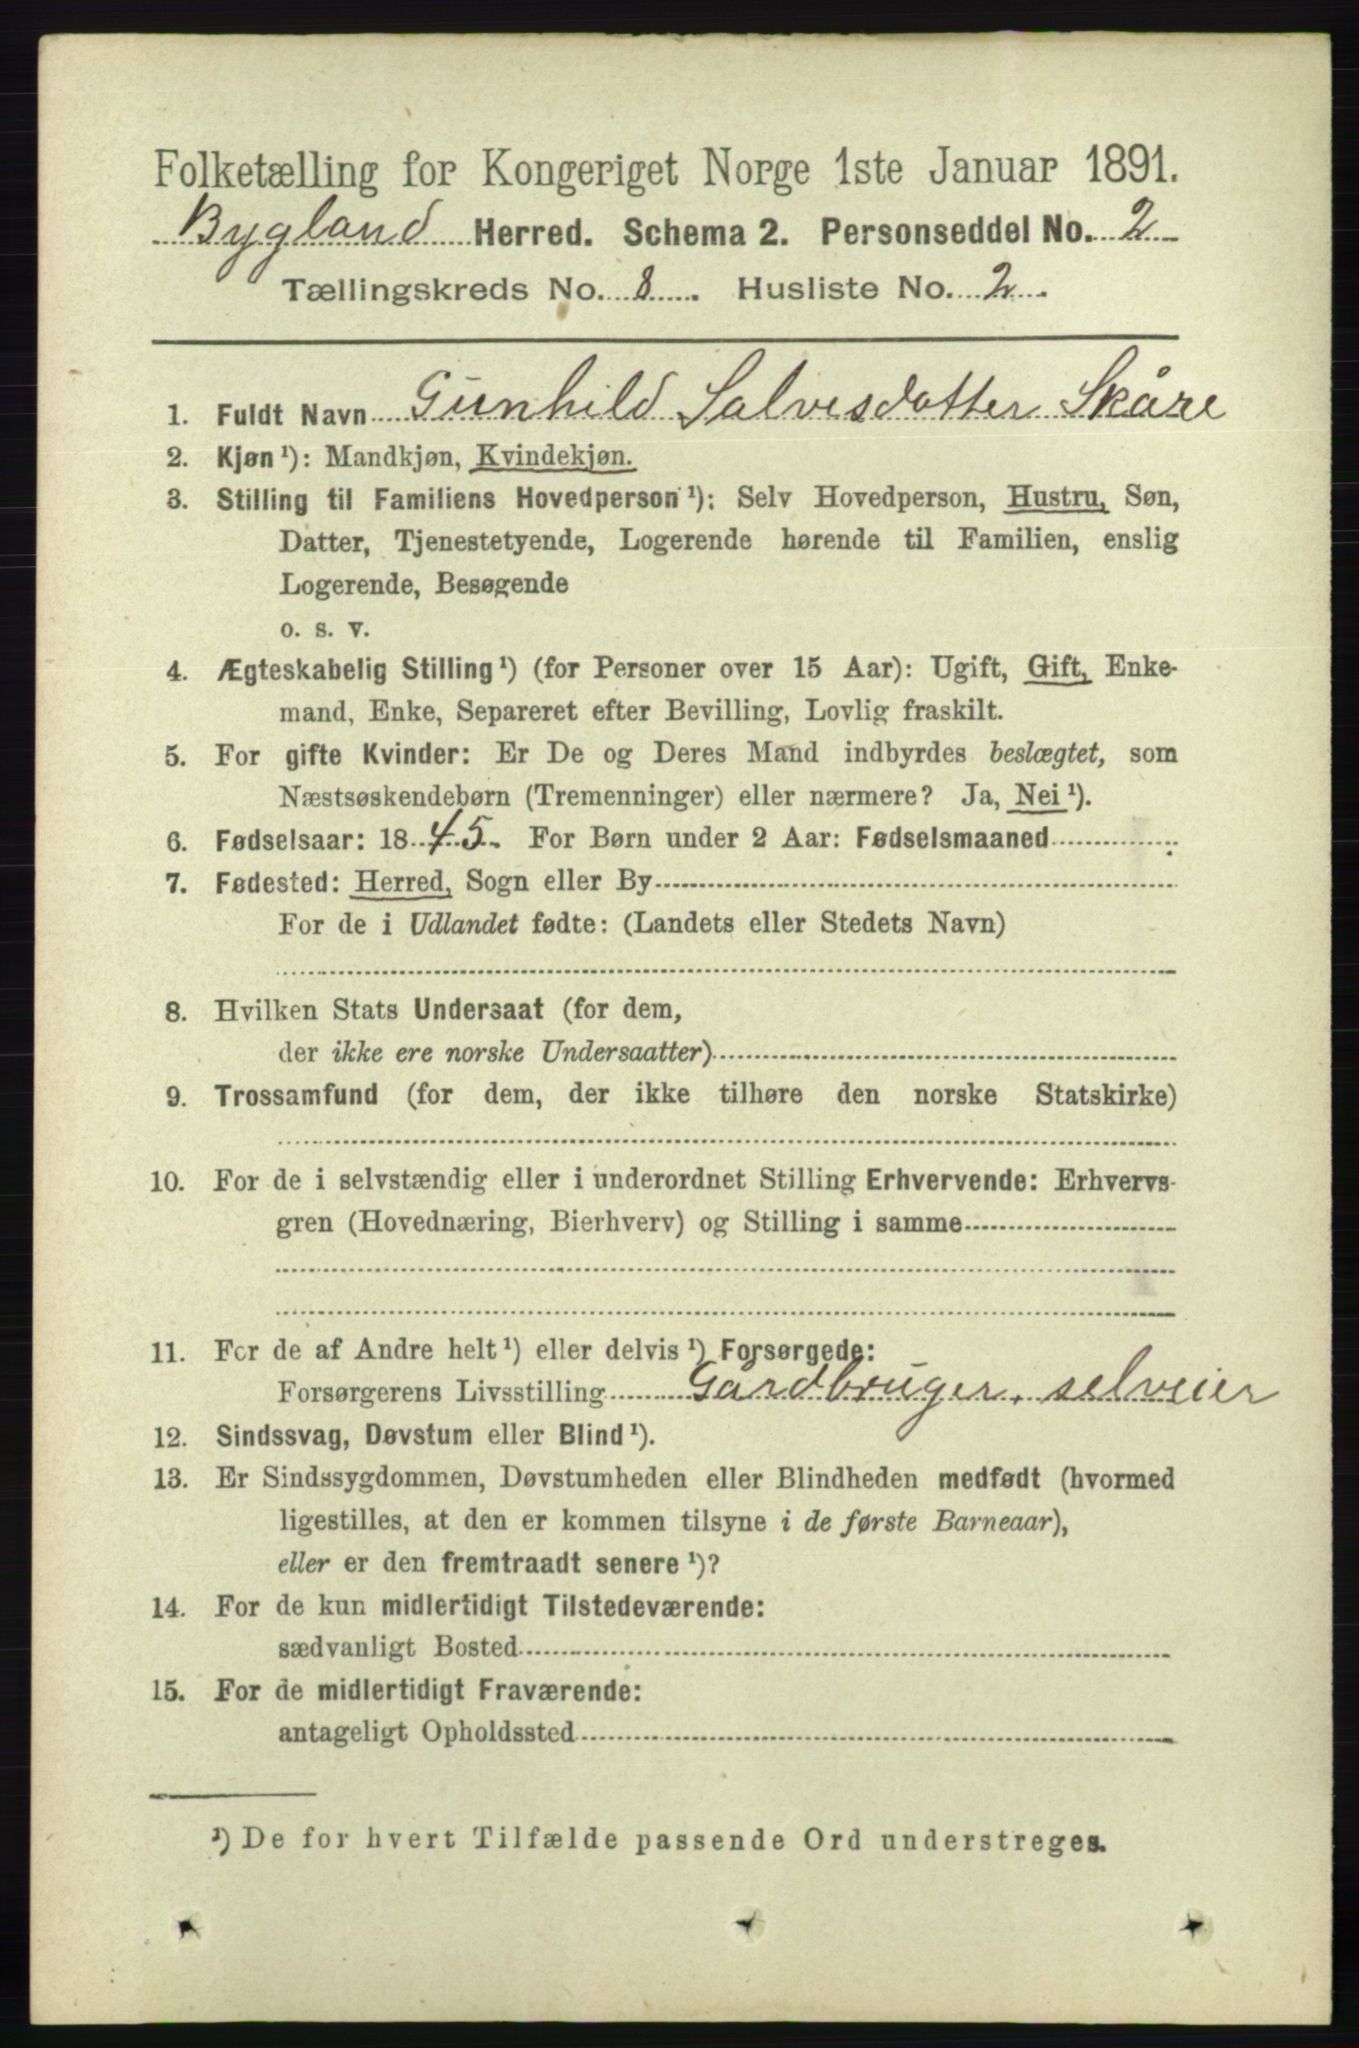 Folketælling for Kongeriget Norge 1ste Januar 1891.
Bygland Herred. Schema 2. Personseddel No. 2
Tællingskreds No. 8. Husliste No. 2.
1. Fuldt Navn Gunhild Salvesdatter Skåre
2. Kjøn¹): Mandkjøn, Kvindekjøn.
3. Stilling til Familiens Hovedperson¹): Selv Hovedperson, Hustru, Søn,
Datter, Tjenestetyende, Logerende hørende til Familien, enslig
Logerende, Besøgende
o. s. v.
4. Ægteskabelig Stilling¹) (for Personer over 15 Aar): Ugift, Gift, Enke-
mand, Enke, Separeret efter Bevilling, Lovlig fraskilt.
5. For gifte Kvinder: Er De og Deres Mand indbyrdes beslægtet, som
Næstsøskendebørn (Tremenninger) eller nærmere? Ja, Nei¹).
6. Fødselsaar: 1845. For Børn under 2 Aar: Fødselsmaaned
7. Fødested: Herred, Sogn eller By
For de i Udlandet fødte: (Landets eller Stedets Navn)
8. Hvilken Stats Undersaat (for dem,
der ikke ere norske Undersaatter)
9. Trossamfund (for dem, der ikke tilhøre den norske Statskirke)
10. For de i selvstændig eller i underordnet Stilling Erhvervende: Erhvervs-
gren (Hovednæring, Bierhverv) og Stilling i samme
11. For de af Andre helt¹) eller delvis¹) Forsørgede:
Forsørgerens Livsstilling Gårdbruger, selveier
12. Sindssvag, Døvstum eller Blind¹).
13. Er Sindssygdommen, Døvstumheden eller Blindheden medfødt (hvormed
ligestilles, at den er kommen tilsyne i de første Barneaar),
eller er den fremtraadt senere¹)?
14. For de kun midlertidigt Tilstedeværende:
sædvanligt Bosted
15. For de midlertidigt Fraværende:
antageligt Opholdssted
¹) De for hvert Tilfælde passende Ord understreges.